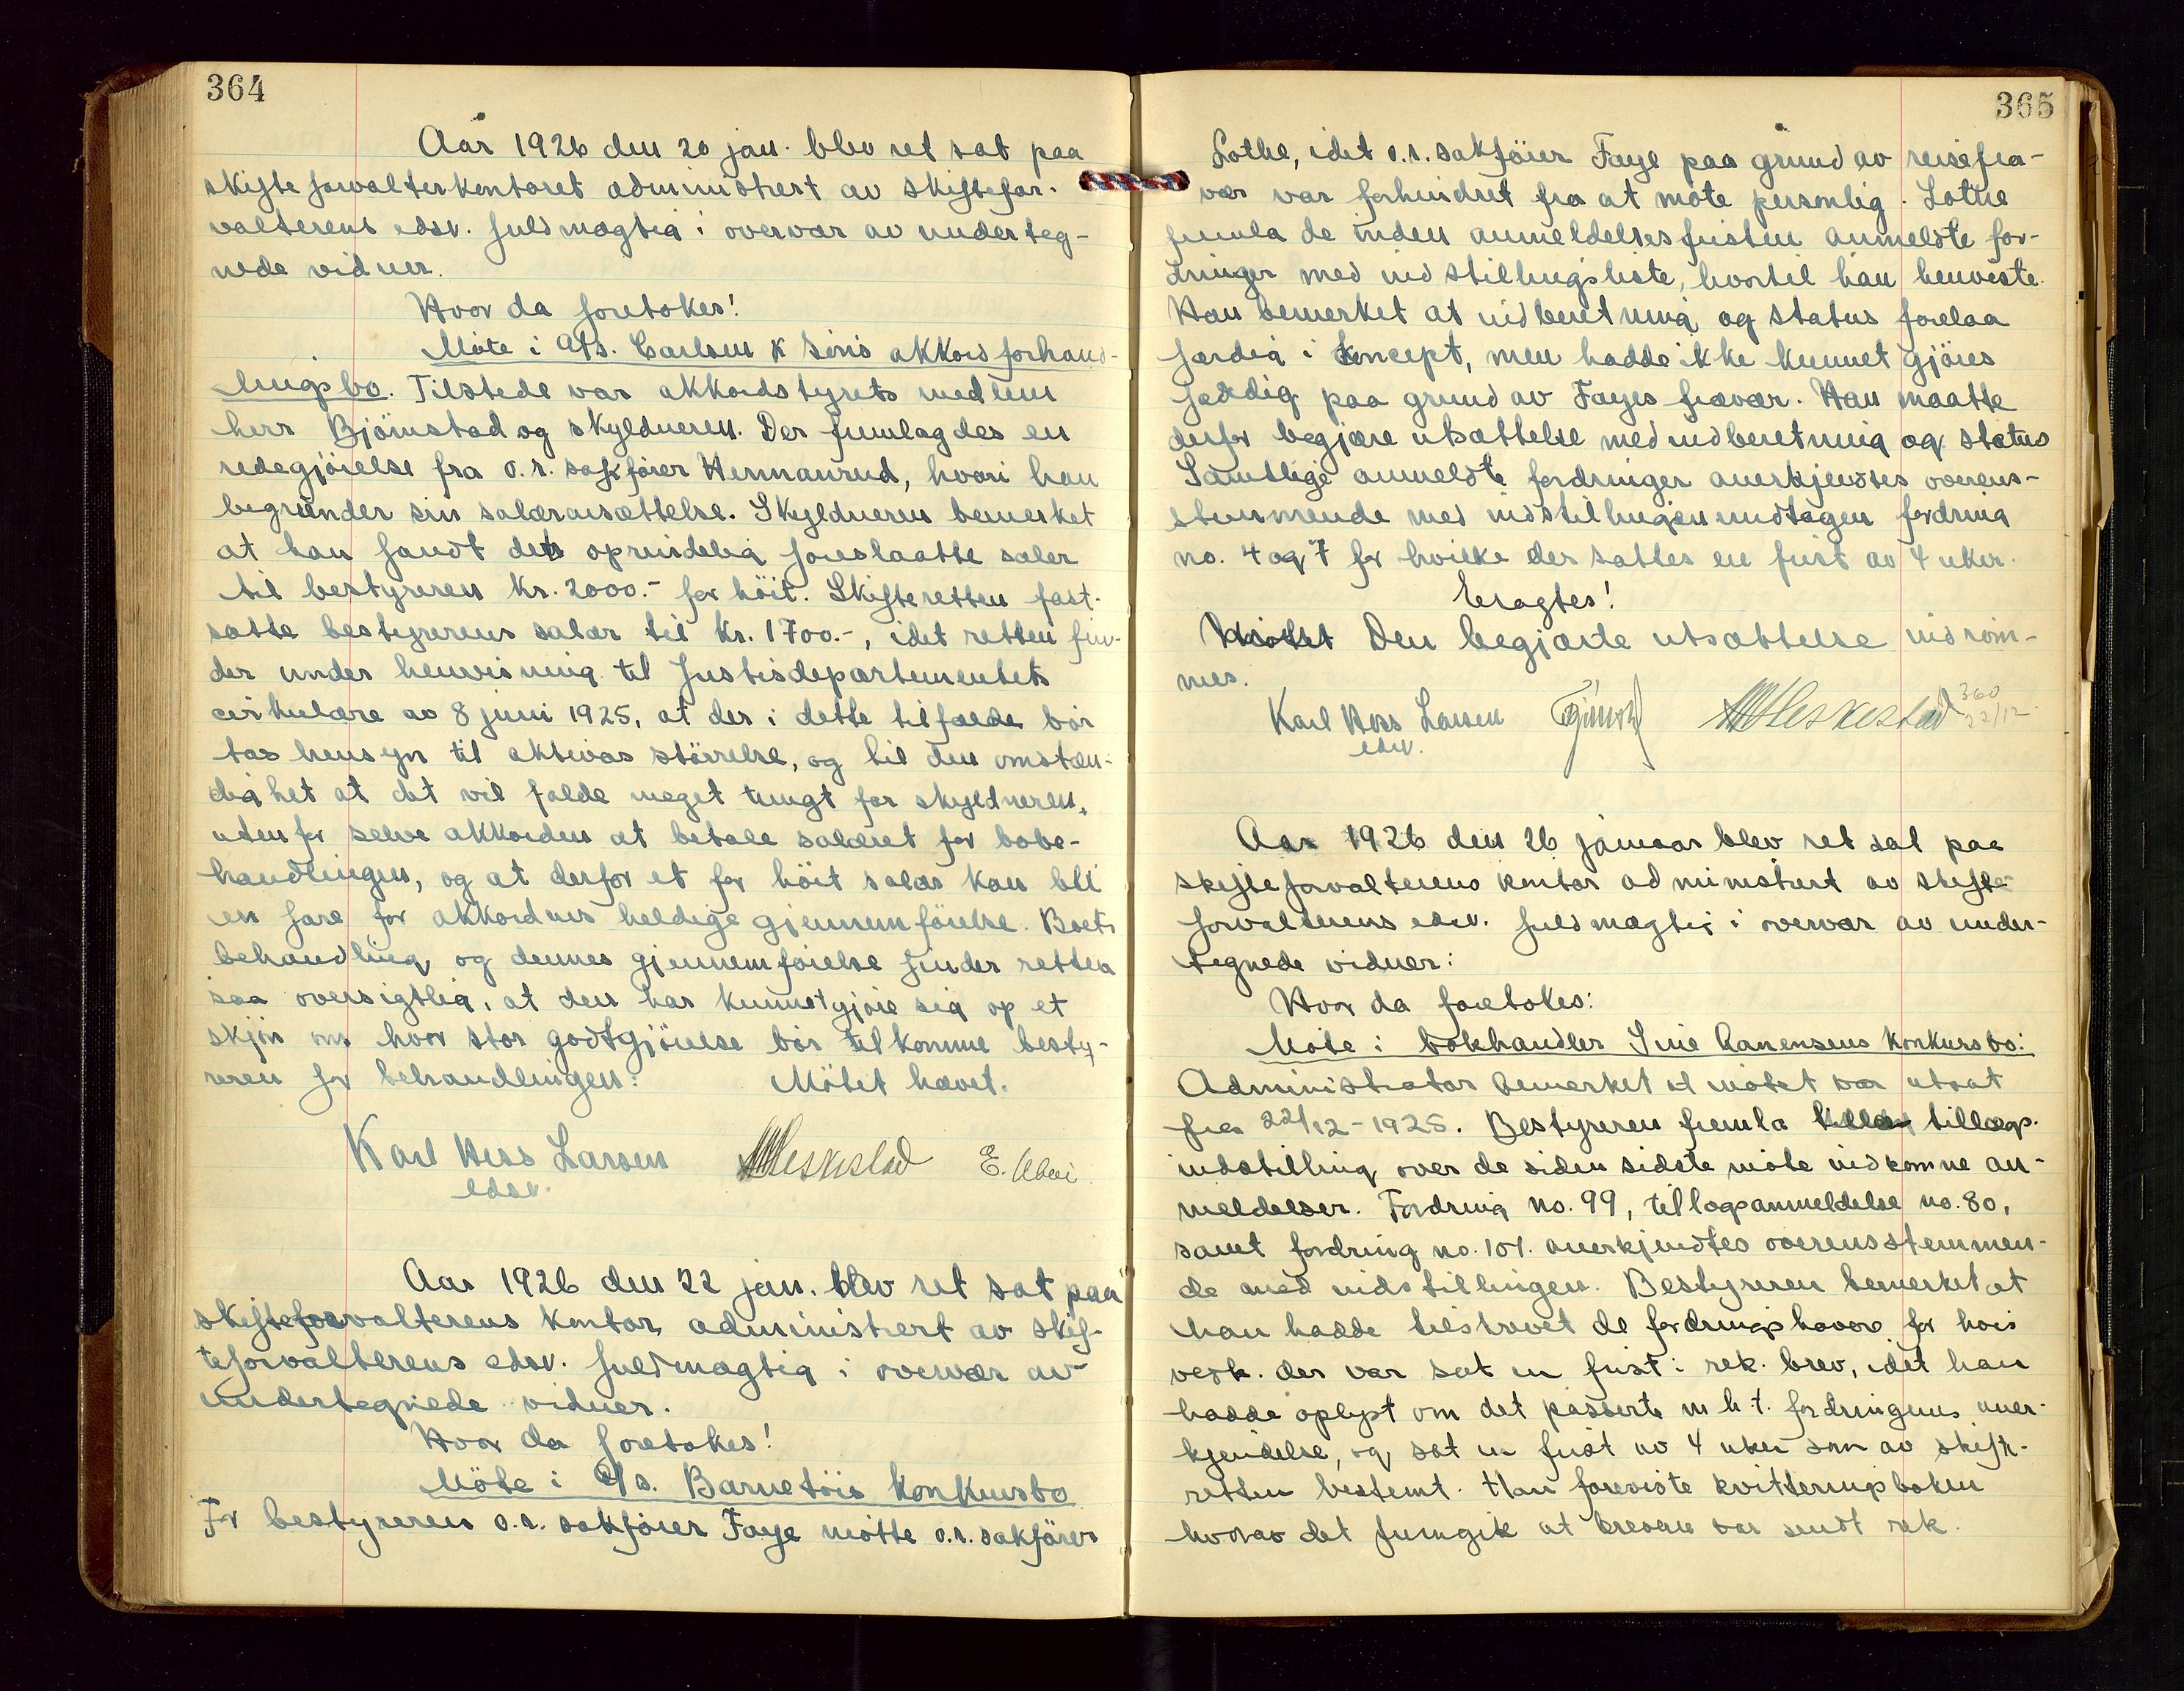 364
Aar 1926 den 20 jan. blev ret sat paa
skifteforvalterkontoret administrert av skiftefor-
valterens edsv. fuldmægtig i overvær av underteg-
nede vidner.
Hvor da foretokes!
Møte i A/s. Carlsen & Søns akkordforhand-
lingsbo. Tilstede var akkordstyrets medlem
herr Björnstad og skyldneren. Der fremlagdes en
redegjörelse fra o.r. sakförer Hermanrud, hvori han
begrunder sin salæransættelse. Skyldneren bemerket
at han fandt det oprindelig foreslaatte salær
til bestyreren kr. 2000.- for höit. Skifteretten fast-
satte bestyrerens salær til kr. 1700.-, idet retten fin-
der under henvisning til Justisdepartementets
cirkulære av 8 juni 1925, at der i dette tilfælde bör
tas hensyn til aktivas störrelse, og til den omstæn-
dighet at det vil falde meget tungt for skyldneren,
utenfor selve akkorden at betale salæret for bobe-
handlingen, og at derfor et for höit salær kan bli
en fare for akkordens heldige gjennemförelse. Boets
behandling og dennes gjennemförelse finder retten
saa oversigtlig, at den har kunnet gjöre sig op et
skjön om hvor stor godtgjörelse bör tilkomme besty-
reren for behandlingen: Mötet hævet.
Karl Hess Larsen
edsv.
Heskestad
Aar 1926 den 22 jan. blev ret sat paa
skifteforvalterens kontor administrert av skif-
teforvalterens edsv. fuldmægtig i overvær av
undertegnede vidner.
Hvor da foretokes!
Möte i A/s. Barnetöis konkursbo
For bestyreren o.r. sakförer Faye mötte o.r. sakförer
365
Lothe, idet o.r. sakförer Faye paa grund av reisefra-
vær var forhindret fra at möte personlig. Lothe
fremla de inden anmeldelsesfristen anmeldte for-
dringer med indstillingsliste, hvortil han henviste.
Han bemerket at indberetning og status forelaa
færdig i koncept, men hadde ikke kunnet gjöres
færdig paa grund av Fayes fravær. Han maatte
derfor begjære utsættelse med indberetning og status
Samtlige anmeldte fordringer anerkjendtes overens-
stemmende med indstillingen undtagen fordring
no. 4 og 7 for hvilke der sattes en frist av 4 uker.
Eragtes!
Den begjærte utsættelse indröm-
mes.
Karl Hess Larsen
edsv.
Heskestad
360
22/12
Aar 1926 den 26 januar blev ret sat paa
skifteforvalterens kontor administrert av skifte-
forvalterens edsv. fuldmægtig i overvær av under-
tegnede vidner:
Hvor da foretokes:
Möte i bokhandler Sine Aanensens konkursbo:
Administrator bemerket at mötet var utsat
fra 22/12-1925. Bestyreren fremla tillægs-
indstilling over de siden sidste möte indkomne an-
meldelser. Fordring no. 99, tillægsanmeldelse no. 80,
samt fordring no. 101. anerkjendtes overensstemmen-
de med indstillingen. Bestyreren bemerket at
han hadde tilskrevet de fordringshavere for hvis
vedk. der var sat en frist i rek. brev, idet han
hadde oplyst om det passerte m.h.t. fordringens aner-
kjendelse, og sat en frist av 4 uker som av skifte-
retten bestemt. Han foreviste kvitteringsboken
hvorav det fremgik at brevene var sendt rek.